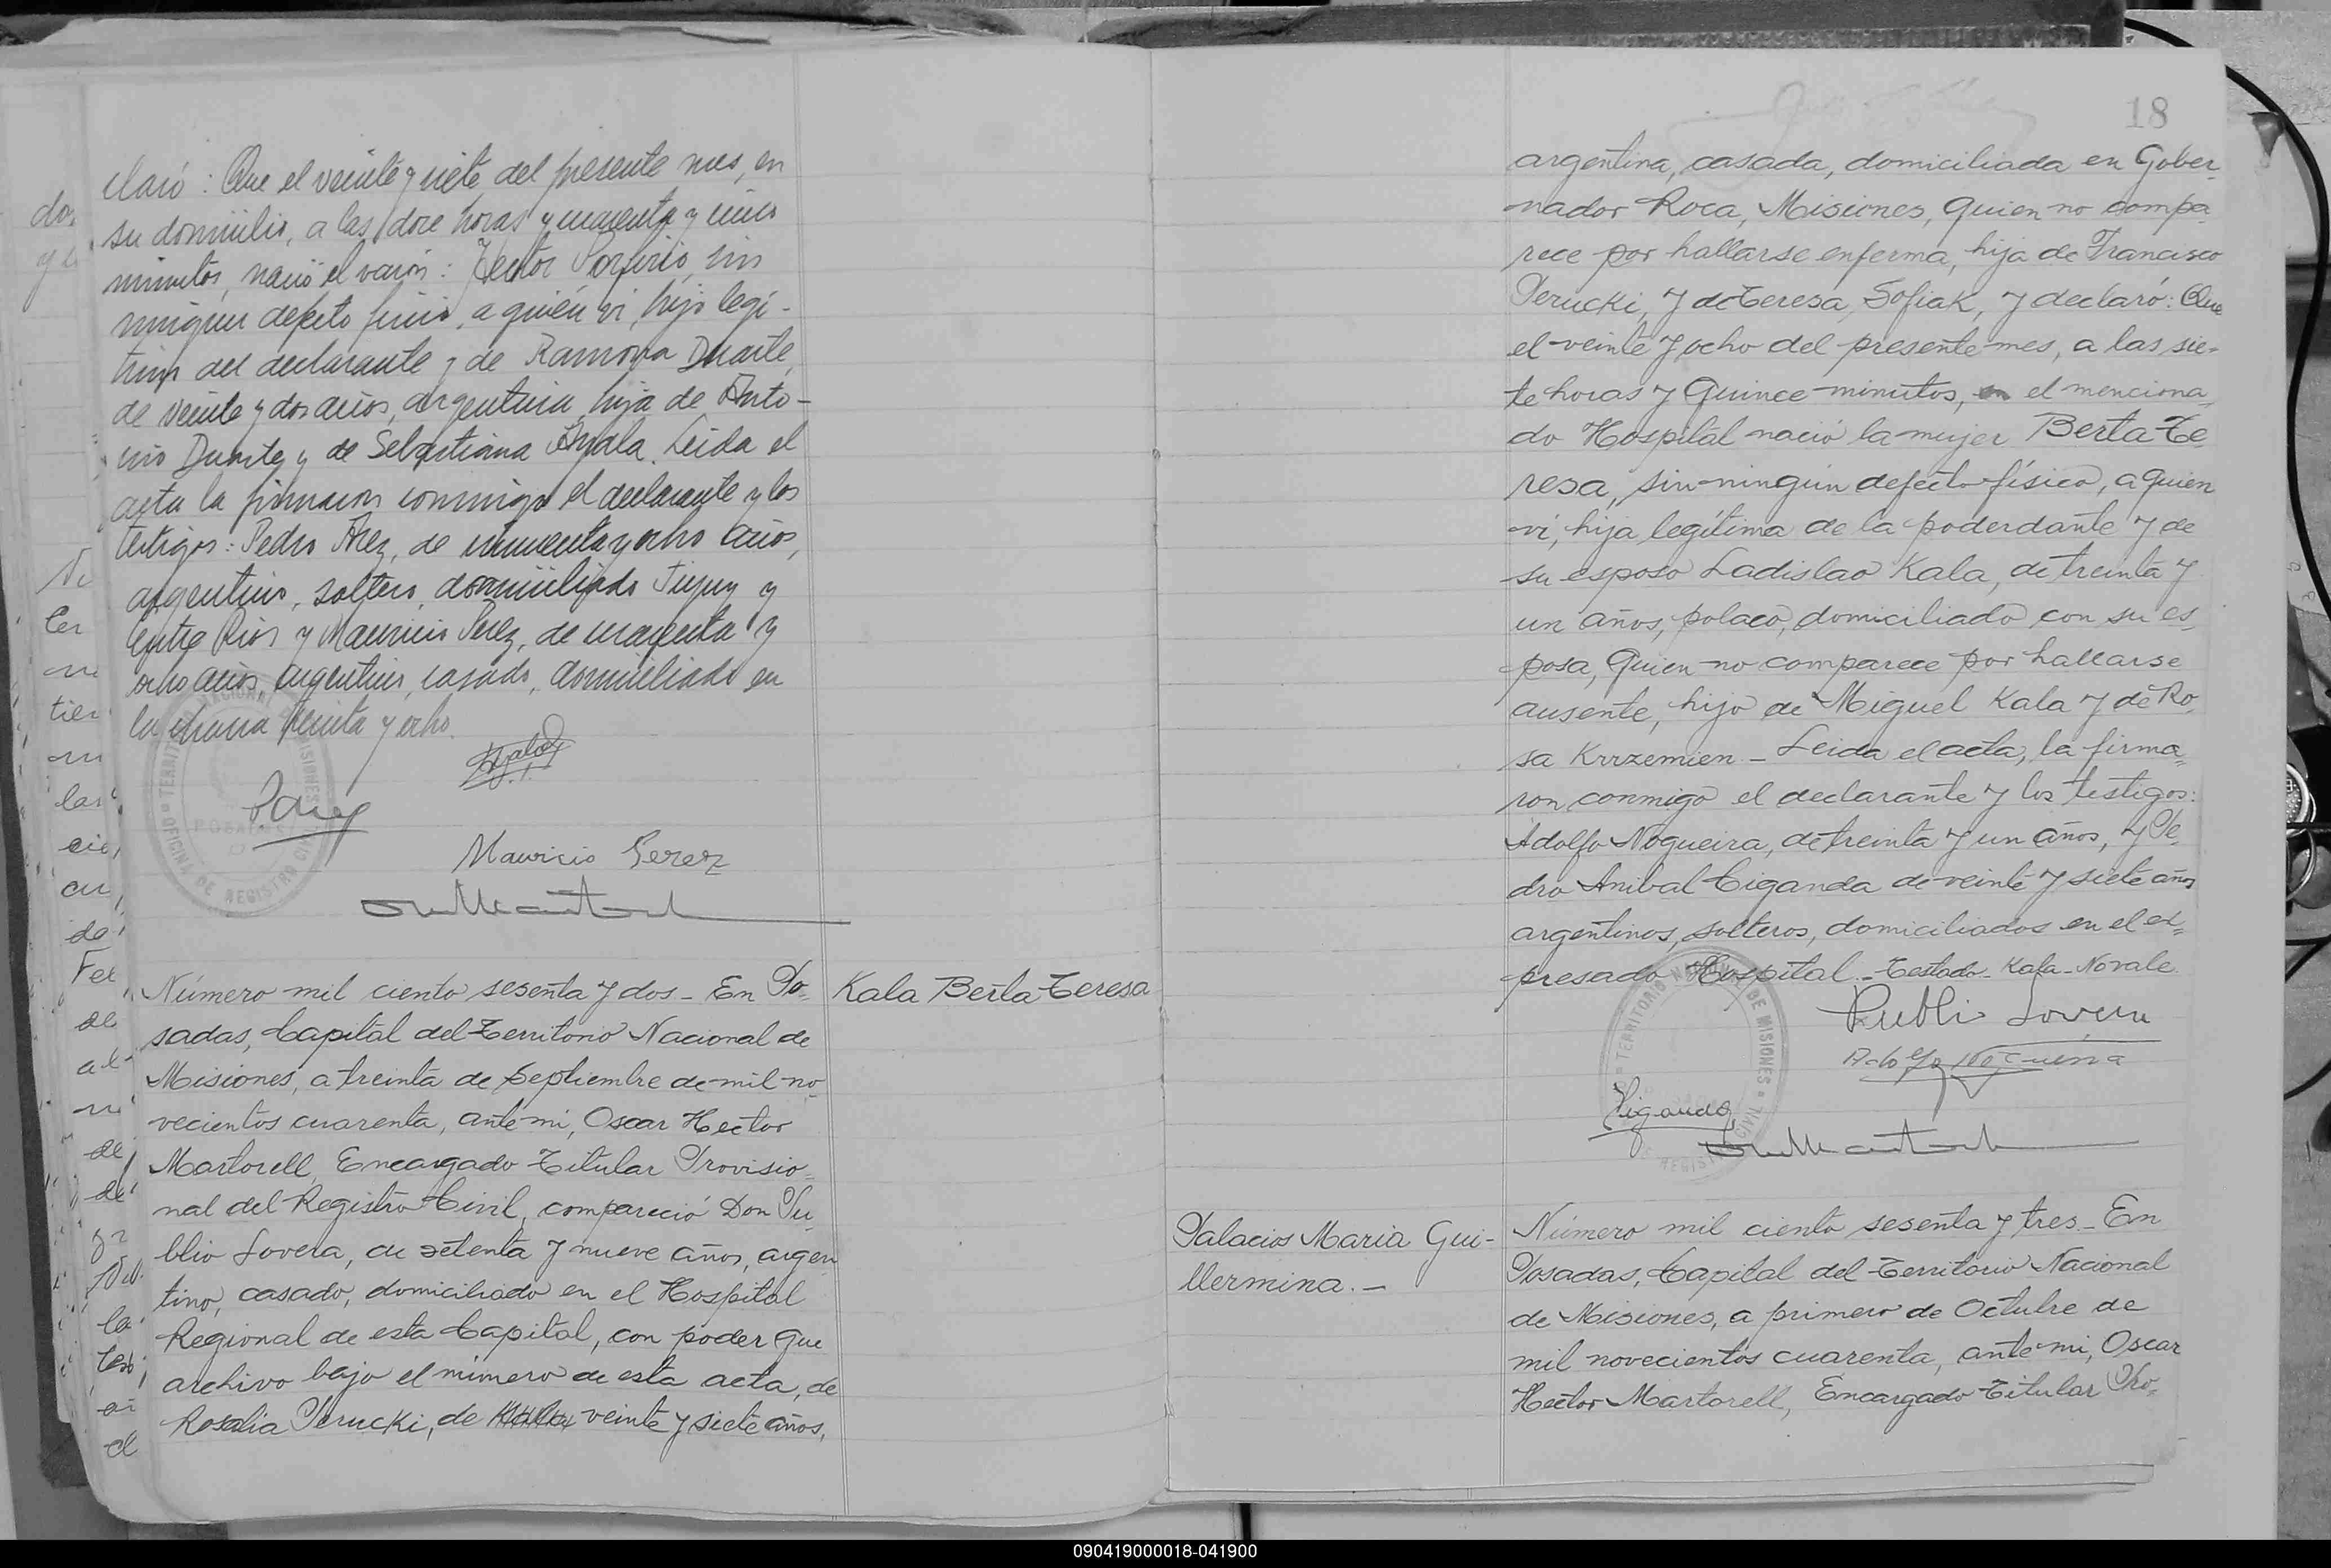 claró: Que el veinte y siete del presente mes, en
su domicilio, a las doce horas y cuarenta y cinco
minutos, nació el varón: Hector Porfirio, sin
ningun defecto fisico, a quién vi, hijo legi-
timo del declarante y de Ramona Duarte,
de veinte y dos años, argentina, hija de Anto-
nio Duarte y de Sebastiana Ayala. Leida el
acta la firmaron conmigo el declarante y los
testigos: Pedro Paez, de cincuenta y ocho años,
argentino, soltero, domiciliado Jujuy y
Entre Rios y Mauricio Perez, de cuarenta y
ocho años, argentino, casado, domiciliado en
la chacra treinta y ocho.
Mauricio Perez
Número mil ciento sesenta y dos_ En Po=
sadas, Capital del Territorio Nacional de
Misiones, a treinta de Septiembre de mil no=
vecientos cuarenta, ante mi, Oscar Hector
Martorell, Encargado Titular Provisio=
nal del Registro Civil, compareció Don Pu=
blio Lovera, de setenta y nueve años, argen
tino, casado, domiciliado en el Hospital
Regional de esta Capital, con poder que
archivo bajo el número de esta acta, de
Rosalia Perucki, de Kala veinte y siete años,
Kala Berta Teresa
18
argentina, casada, domiciliada en Gober=
nador Roca, Misiones, quien no compa=
rece por hallarse enferma, hija de Francisco
Perucki, y de Teresa, Sofiak, y declaró: Que
el veinte y ocho del presente mes, a las sie=
te horas y quince minutos, en el menciona=
do Hospital nació la mujer Berta Te
resa, sin ningún defecto físico, a quien
vi, hija legítima de la poderdante y de
su esposo Ladislao Kala, de treinta y
un años, polaco, domiciliado con su es=
posa, quien no comparece por hallarse
ausente, hijo de Miguel Kala y de Ro=
sa Krrzemien_ Leida el acta, la firma=
ron conmigo el declarante y los testigos:
Adolfo Nogueira, de treinta y un años, y Pe=
dro Anibal Ciganda de veinte y siete años
argentinos, solteros, domiciliados en el ex=
presado Hospital_ Testado_ Kala_ No vale.
Publio Lovera
Adolfo Nogueira
Ciganda
Palacios Maria Gui-
llermina._
Número mil ciento sesenta y tres_ En
Posadas, Capital del Territorio Nacional
de Misiones, a primero de Octubre de
mil novecientos cuarenta, ante mi, Oscar
Hector Martorell, Encargado Titular Pro=
090419000018-041900